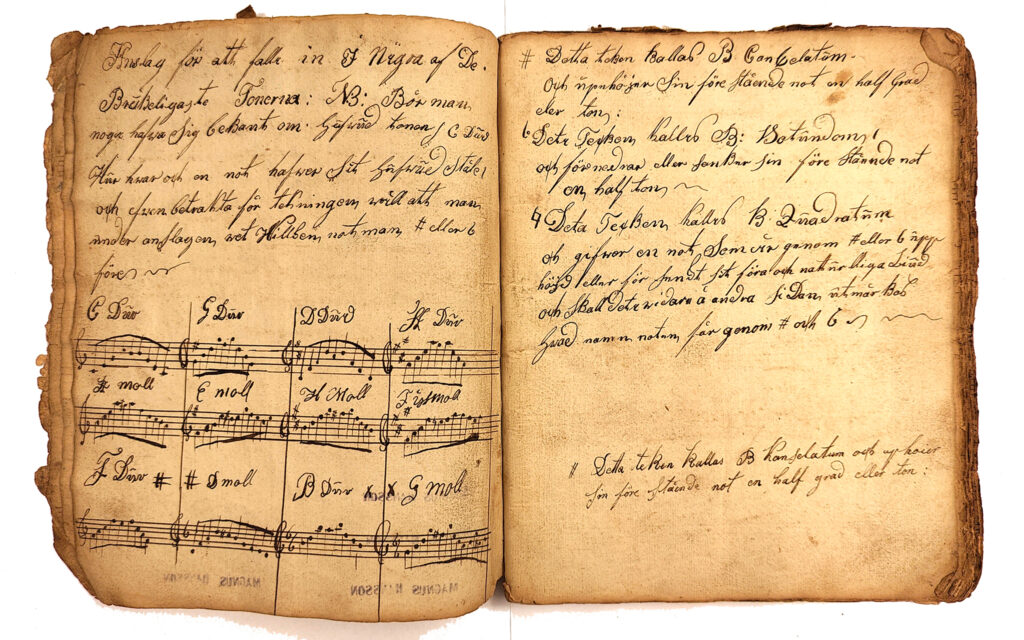 Anslag för att falla in i Några af De
Brukeligaste Tonerna: NB: Bör man
noga hafwa sig bekant om Hufwud tonen C Dur
Hur hwar och en not hafwer sit Hufwud Ställe
och efven betrakta för tekningen, will att man
under anslagen, vet Hillken not man # eller b
före
C Dur G Dur D Dur A Dur
A moll E moll H Moll Fis moll
F Dur # # D moll B Dur x x G moll
MAGNUS HANSSON
MAGNUS HANSSON
# Detta teken kallas B Cancelatum.
och uppehöijer Sin före Stående not en half Grad
eler ton:
b Deta Teyken kallas B: Rotundom
och förnedrar eller senker sin före Stående not
en half ton
♮ Deta Teyken kallas B: Quadratum
och gifwer en not, Som är genom # eller b upp
höjd eller för sendt sit förra och naturliga Liud
och skall dete widare å andra Sidan utmärkas
hwad namn noten får genom # och b
# Detta teken kallas B kanselatum och uphöier
sin före stående not en half grad eller ton: